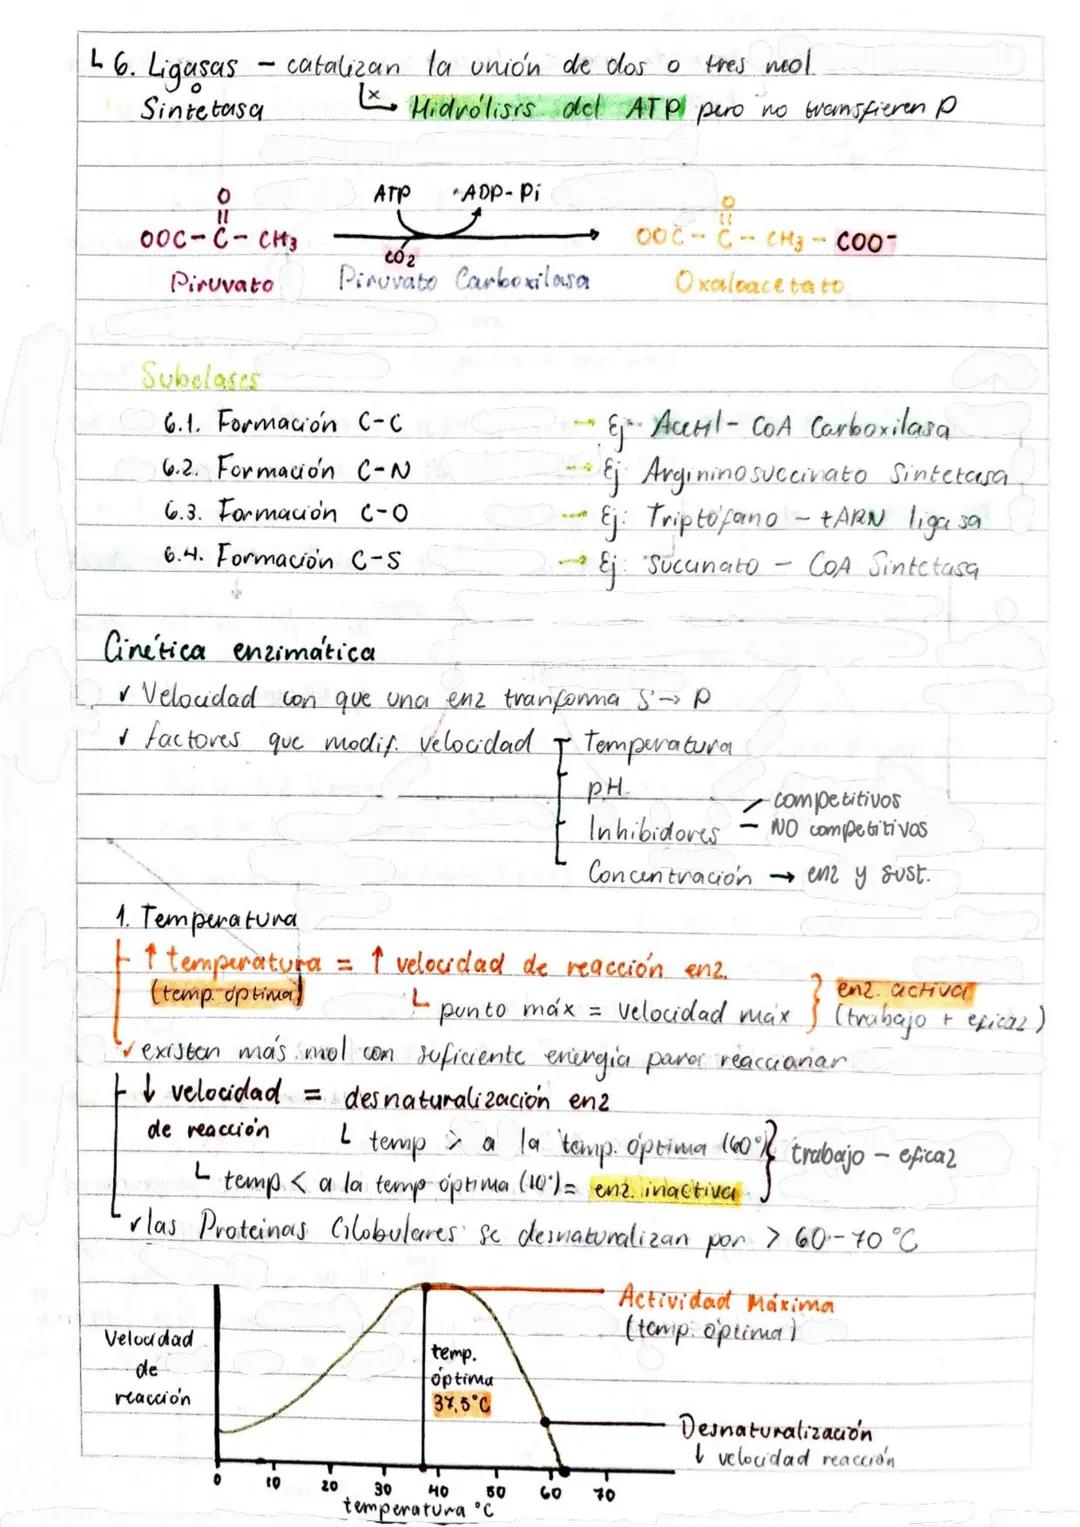 ↳ 6. Ligasas – catalizan la unión de dos o tres mol.
o
Sintetasa
↳ x → Hidrólisis del ATP pero no transfieren P
O
ATP
ADP-Pi
O
OOC-C-CH3
CO2
OOC-C-CH3-COO-
Piruvato
Piruvato Carboxilasa
Oxaloacetato
Subclases
6.1. Formación C-C → Ej: Acetil-CoA Carboxilasa
6.2. Formación C-N → Ej: Argininosuccinato Sintetasa
6.3. Formación C-O → Ej: Triptófano - tARN ligasa
6.4. Formación C-S → Ej: Succinato - CoA Sintetasa
Cinética enzimática
✓ Velocidad con que una enz tranforma S → P
✓ factores que modif. velocidad
Temperatura
pH.
Inhibidores
competitivos
NO competitivos
Concentración → enz y sust.
1. Temperatura
↑ temperatura = ↑ velocidad de reacción enz.
(temp. óptima)
↳ punto máx = velocidad máx
enz. activa
(trabajo + eficaz)
✓ existen más mol con suficiente energía para reaccionar
↓ velocidad = desnaturalización enz
de reacción
↳ temp > a la temp. óptima (60°)
trabajo – eficaz
↳ temp < a la temp óptima (10°) = enz. inactiva
✓ las Proteinas Globulares se desnaturalizan por > 60-70 °C
Velocidad
de
reacción
Actividad Máxima
(temp. óptima)
temp.
óptima
37,5°C
Desnaturalización
↓ velocidad reacción
0 10 20 30 40 50 60 70
temperatura °C